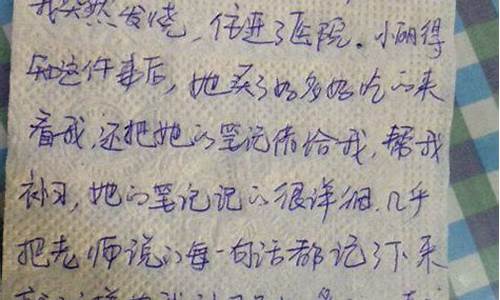 我突然发烧，住进了医院。小丽得
知这件事后，她买了好多好吃的来
看我，还把她的笔记借给我，帮我
补习，她的笔记记的很详细，几乎
把老师说的每一句话都记了下来